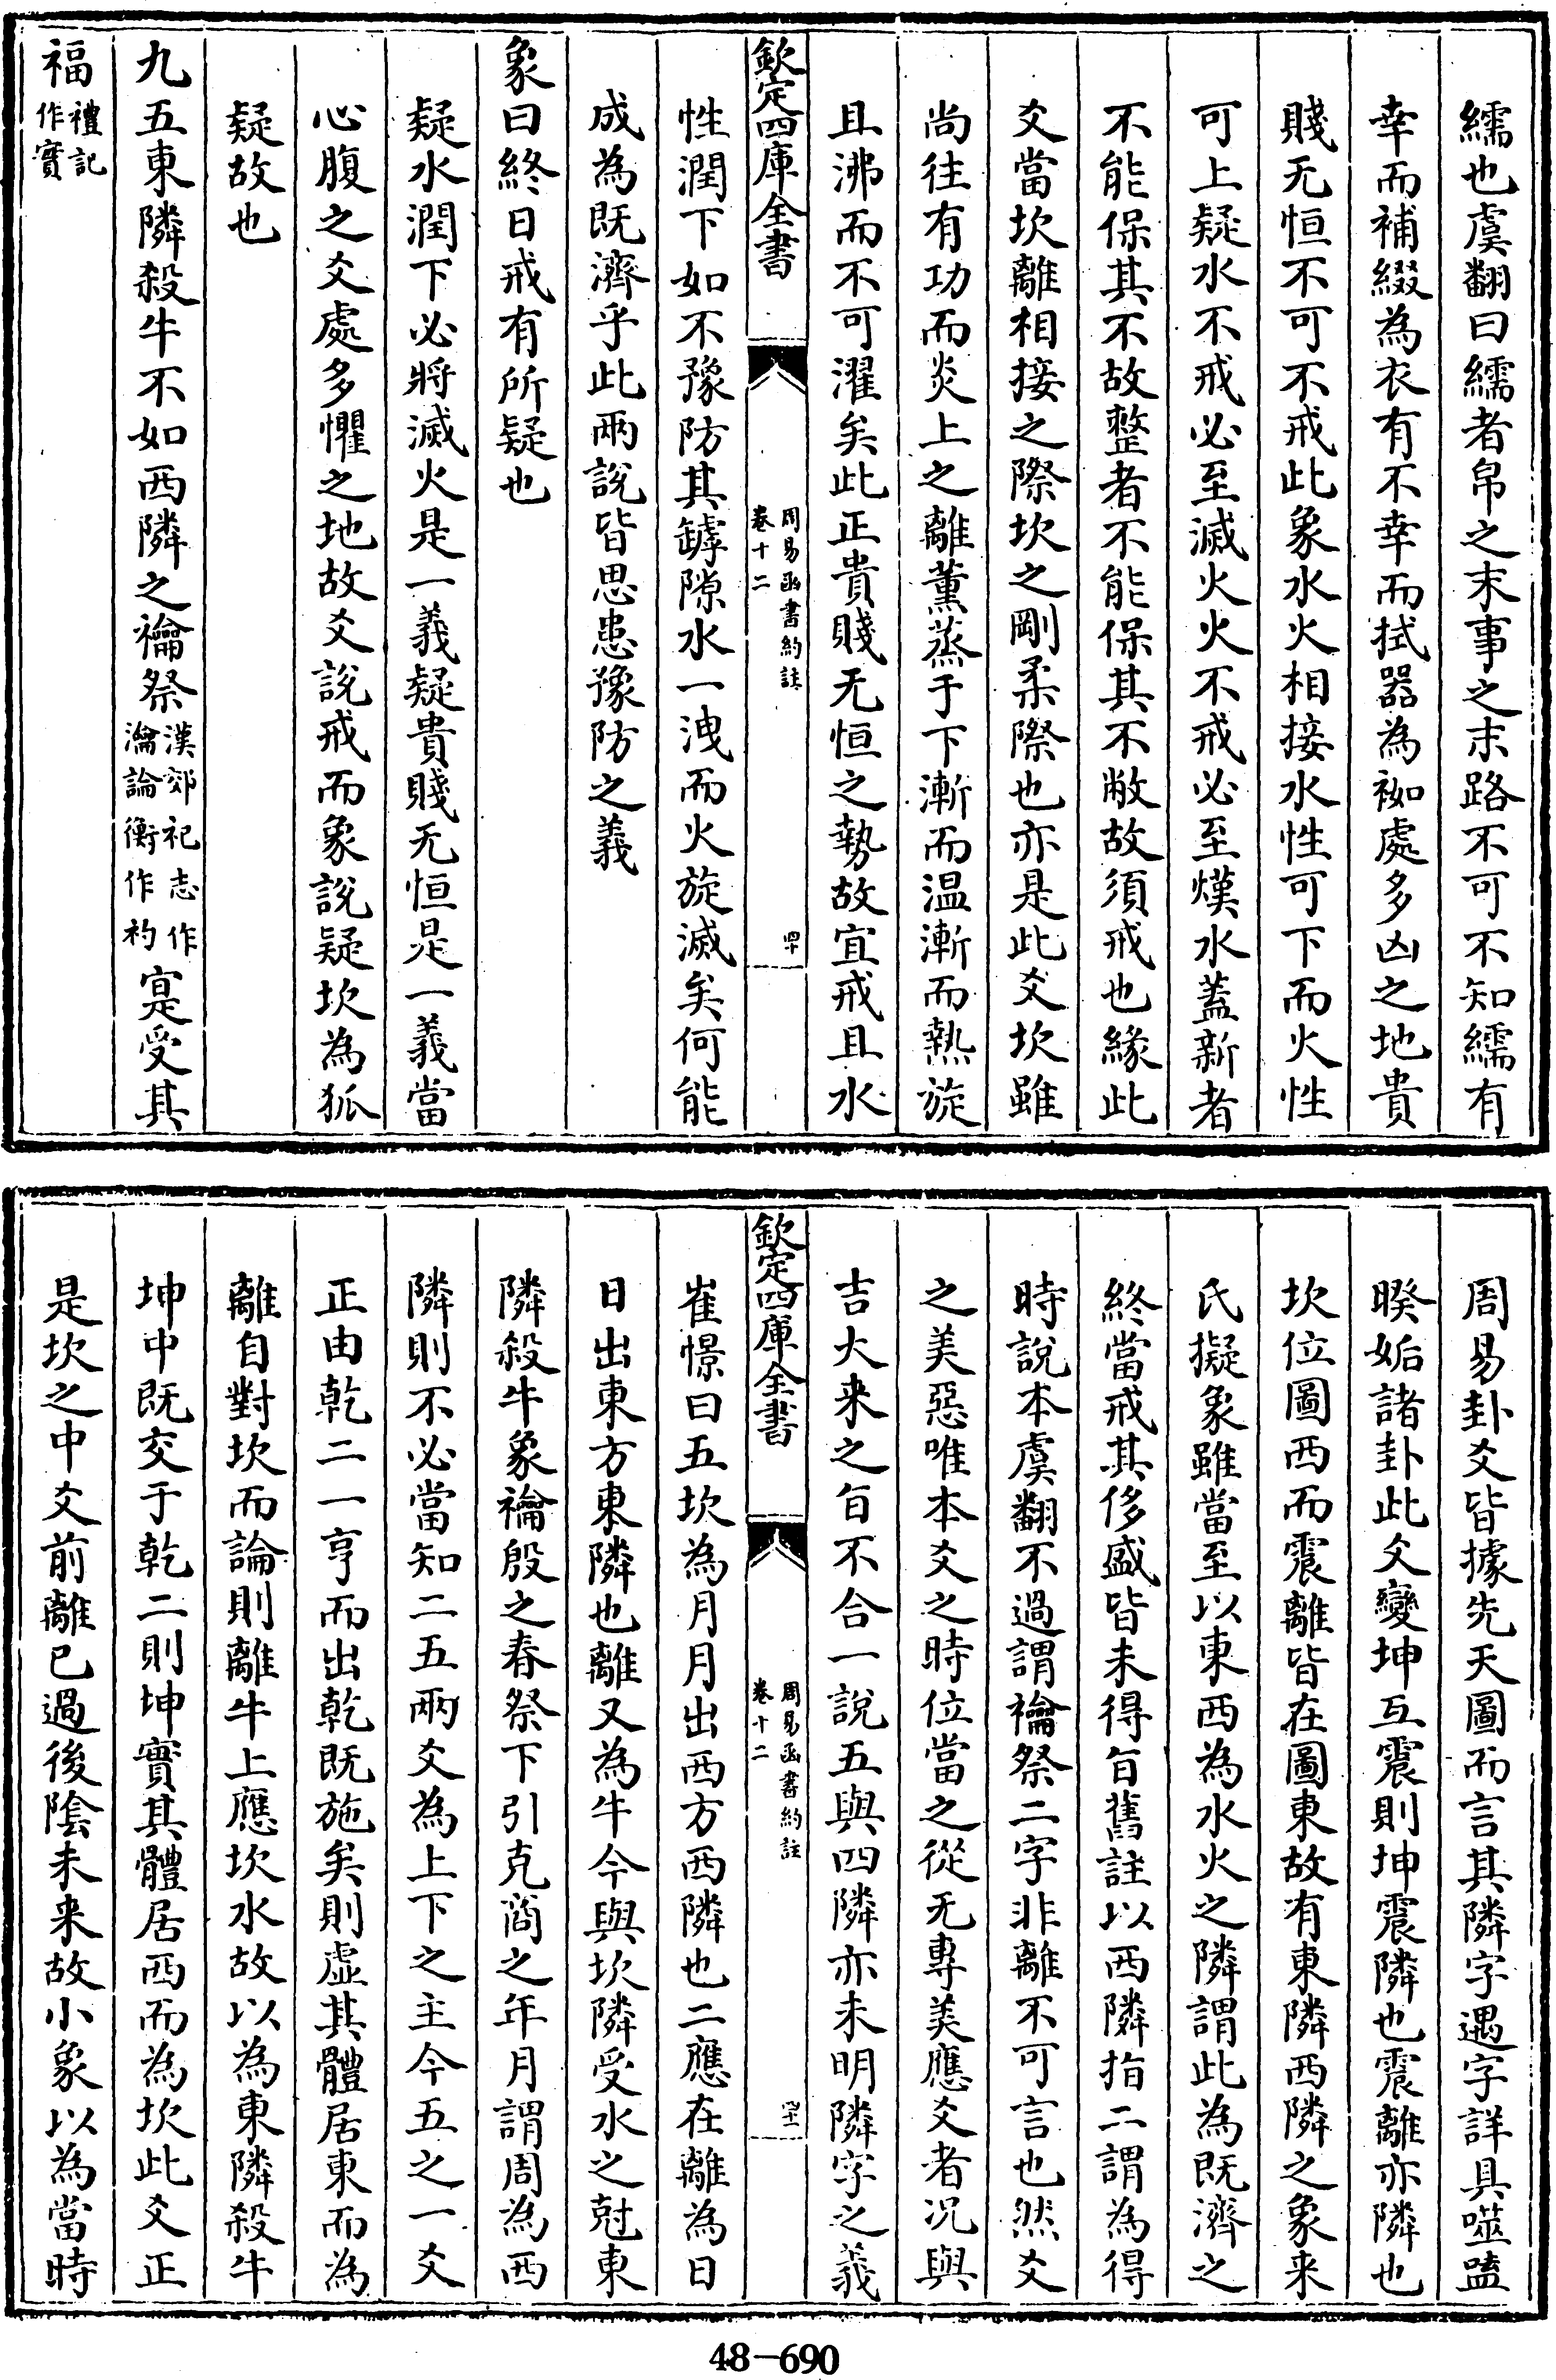 繻也虞翻曰繻者帛之末事之末路不可不知繻有
幸而補綴為衣有不幸而拭器為袽處多凶之地貴
賤无恒不可不戒此象水火相接水性可下而火性
可上疑水不戒必至滅火火不戒必至熯水蓋新者
不能保其不故整者不能保其不敝故須戒也緣此
爻當坎離相接之際坎之剛柔際也亦是此爻坎雖
尚往有功而炎上之離薰蒸于下漸而温漸而熱旋
且沸而不可濯矣此正貴賤无恒之勢故宜戒且水
欽定四庫全書
周易函書約註
卷十二
四十
性潤下如不豫防其罅隙水一洩而火旋滅矣何能
成為既濟乎此兩說皆思患豫防之義
象曰終日戒有所疑也
疑水潤下必將滅火是一義疑貴賤无恒是一義當
心腹之爻處多懼之地故爻說戒而象說疑坎為狐
疑故也
九五東隣殺牛不如西隣之禴祭漢郊祀志作瀹論衡作礿寔受其
福禮記作實
周易卦爻皆據先天圖而言其隣字遇字詳具噬嗑
暌姤諸卦此爻變坤互震則坤震隣也震離亦隣也
坎位圖西而震離皆在圖東故有東隣西隣之象来
氏擬象雖當至以東西為水火之隣謂此為既濟之
終當戒其侈盛皆未得旨舊註以西隣指二謂為得
時說本虞翻不過謂禴祭二字非離不可言也然爻
之美惡唯本爻之時位當之從无專美應爻者况與
吉大来之旨不合一說五與四隣亦未明隣字之義
欽定四庫全書
周易函書約註
卷十二
四十一
崔憬曰五坎為月月出西方西隣也二應在離為日
日出東方東隣也離又為牛今與坎隣受水之尅東
隣殺牛象禴殷之春祭下引克商之年月謂周為西
隣則不必當知二五兩爻為上下之主今五之一爻
正由乾二一亨而出乾既施矣則虛其體居東而為
離自對坎而論則離牛上應坎水故以為東隣殺牛
坤中既交于乾二則坤實其體居西而為坎此爻正
是坎之中爻前離已過後陰未来故小象以為當時
48-690